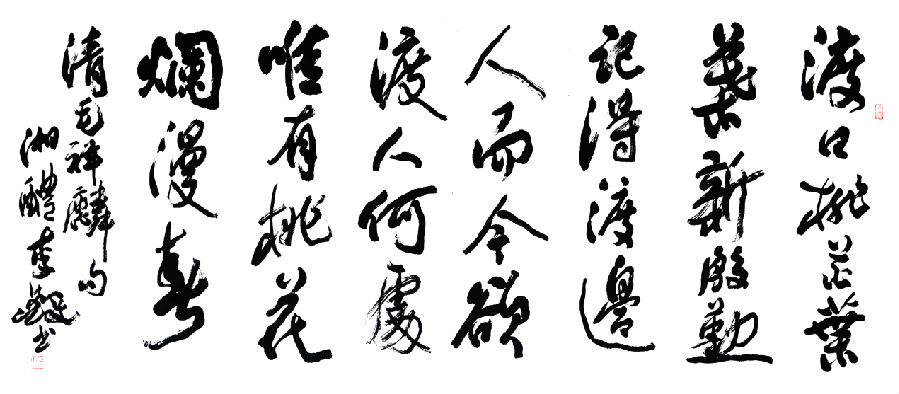 渡口桃花葉
葉新殷勤
記得渡邊
人而今欲
渡人何處
唯有桃花
爛漫春
清毛祥麟句
湘醴李书